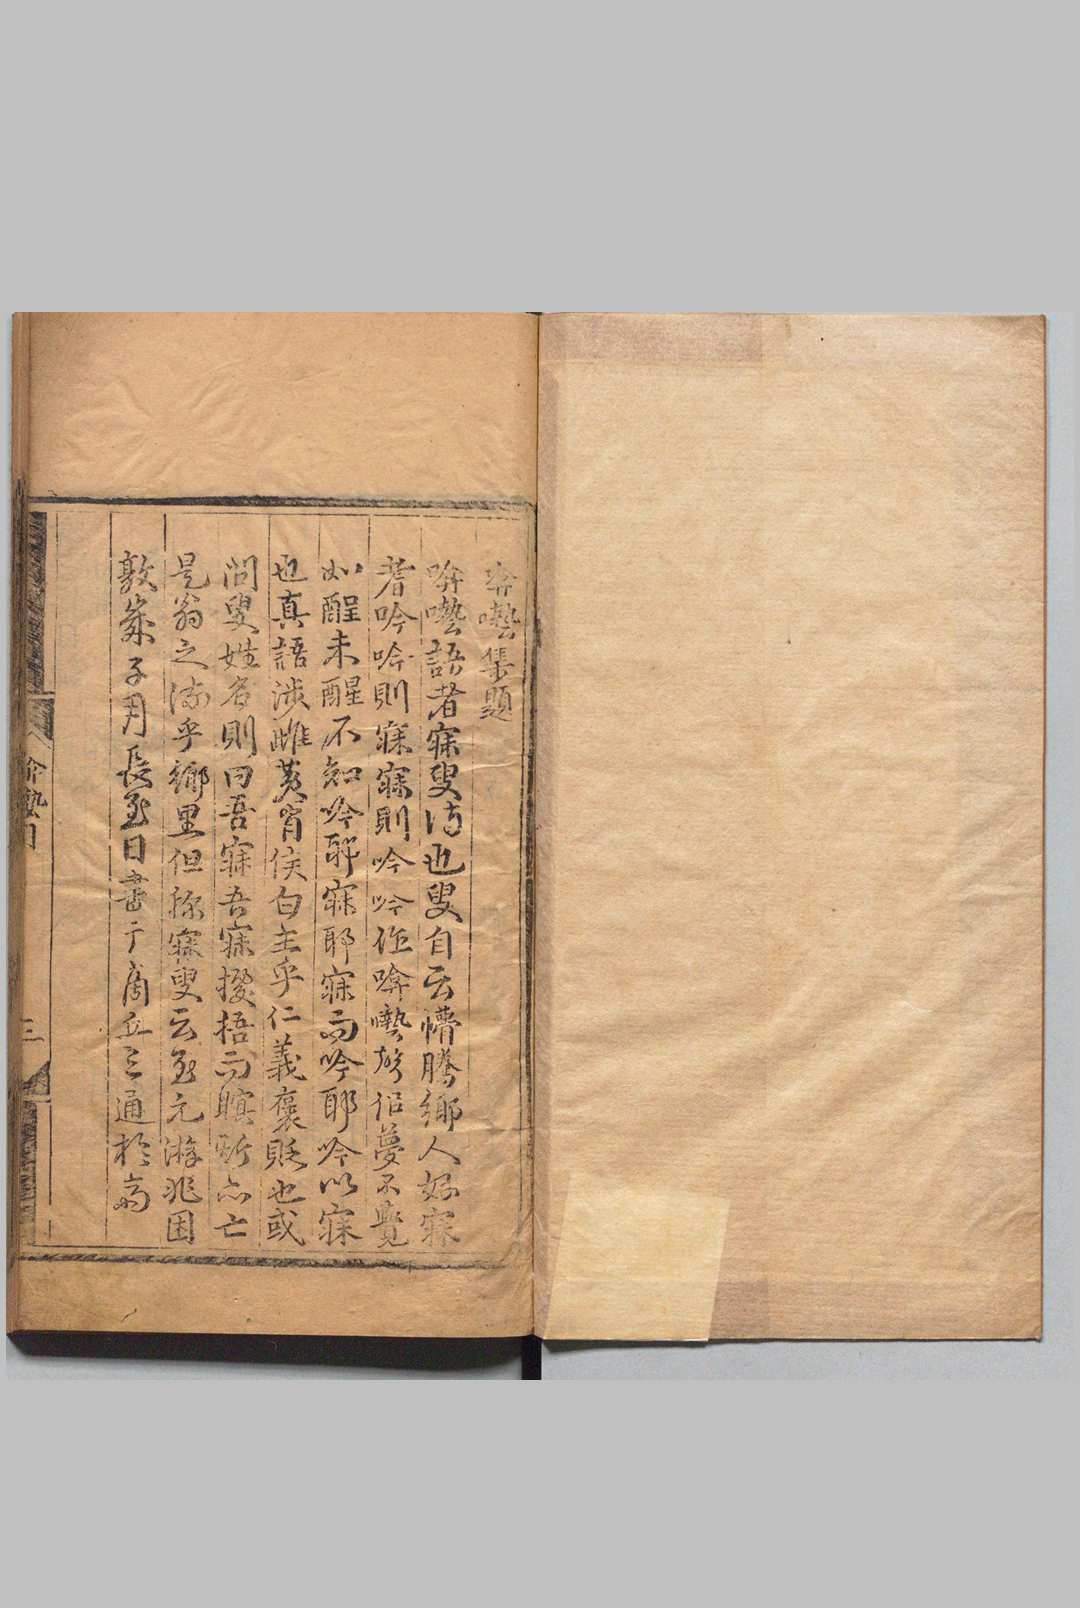 唵囈集題
唵囈語者寐叟詩也叟自云懵騰鄉人好寐
耆吟吟則寐寐則吟吟作唵囈殆佀夢不覺
如酲未醒不知吟耶寐耶寐而吟耶吟以寐
也真語涉雌黃宵侯白主乎仁義褒貶也或
問叟姓名則曰吾寐吾寐掇捂而瞑所亡
是翁之流乎鄉里但稱寐叟云至元游兆困
敦辜子月長至日書于商丘之通於
三